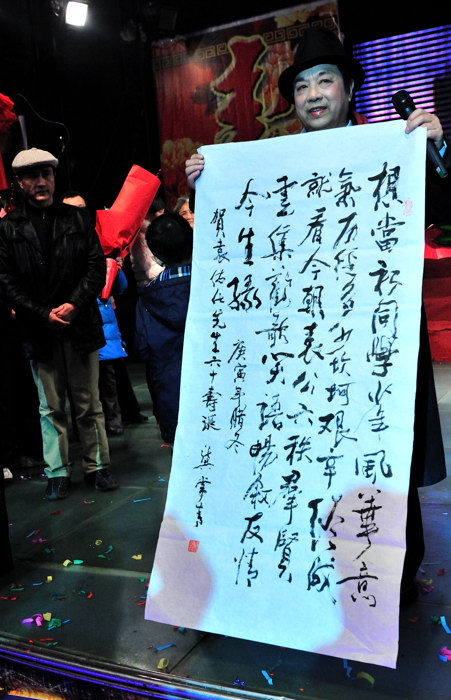 想當初同學少年風華意
氣历經多少坎坷艰辛終成
就看今朝袁公六秩羣賢
雲集歡歌笑語暢敘友情
今生緣 庚寅年腊冬
賀袁先生六十壽诞